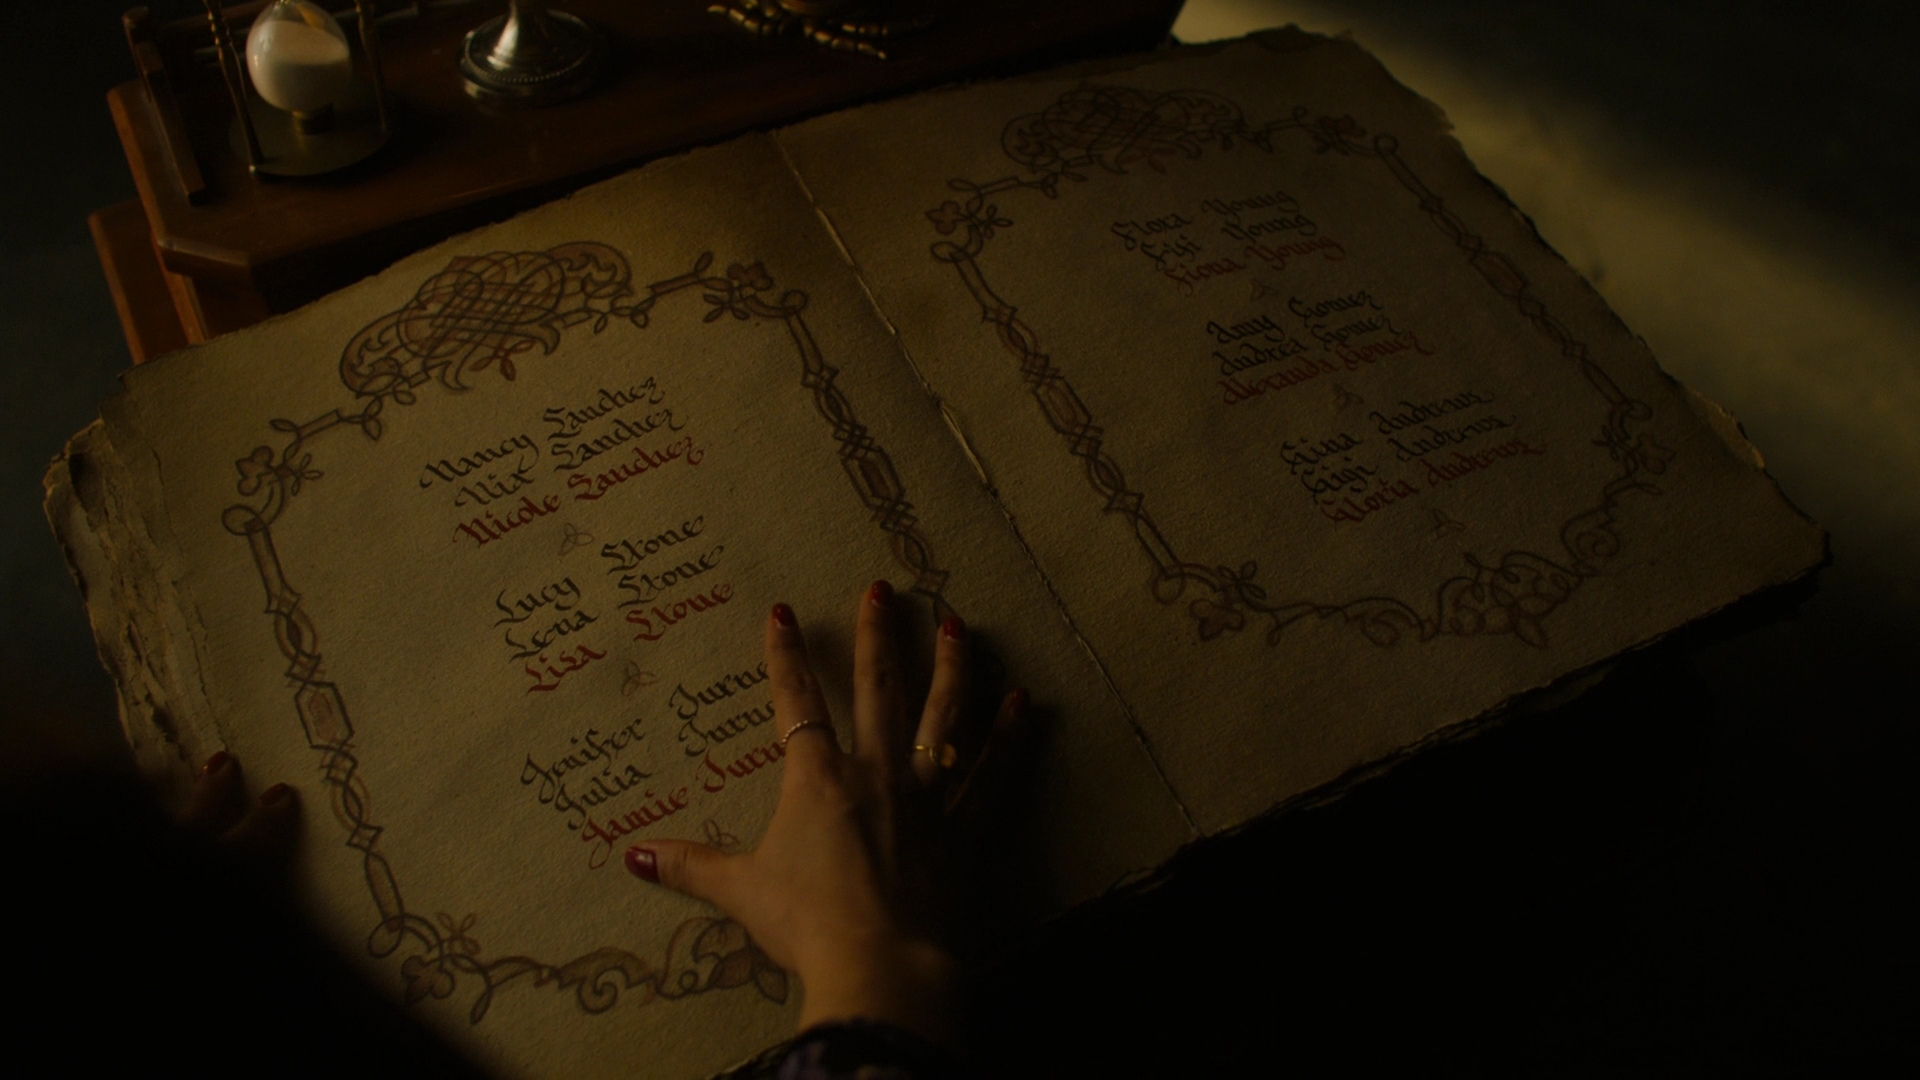 Nancy Sanchez
Nix Sanchez
Nicole Sanchez
Lucy Stone
Lena Stone
Lisa Stone
Jenifer Turne
Julia Turne
Jamie Turn
Flora Young
Fifi Young
Fiona Young
Amy Gomez
Andrea Gomez
Alexanda Gomez
Gina Andrews
Gigi Andrews
Gloria Andrews